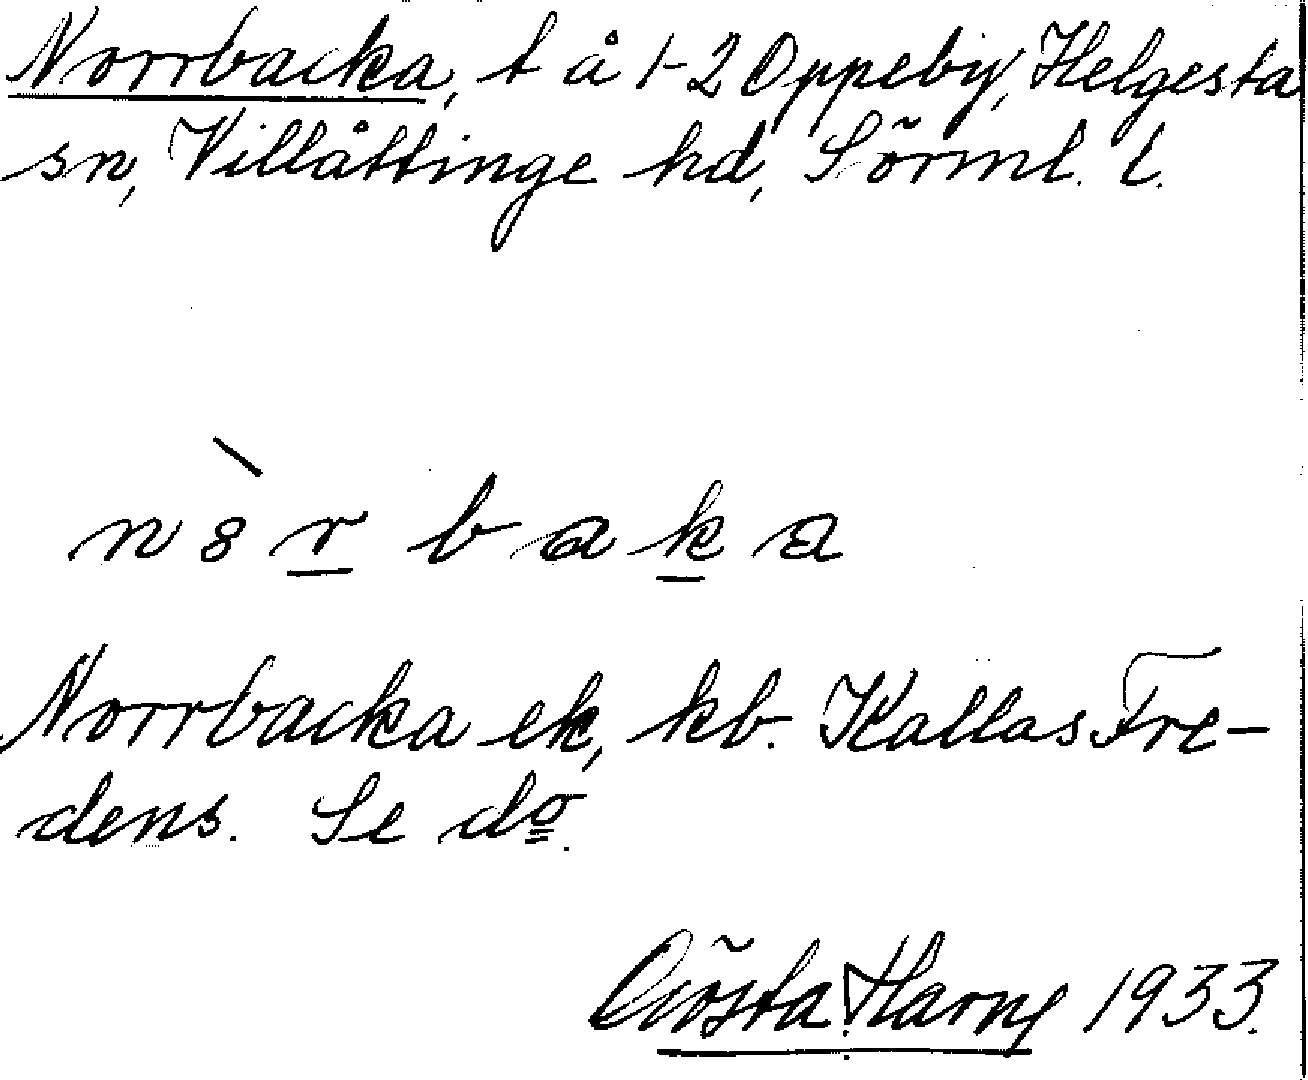 Norrbacka, t å 1-2 Oppeby, Helgesta
sn, Villåttinge hd, Sörml. l.
n ȣ̀ r b a k a
Norrbacka ek, kb. Kallas Fre-
dens. Se do.
Gösta Harny 1933.